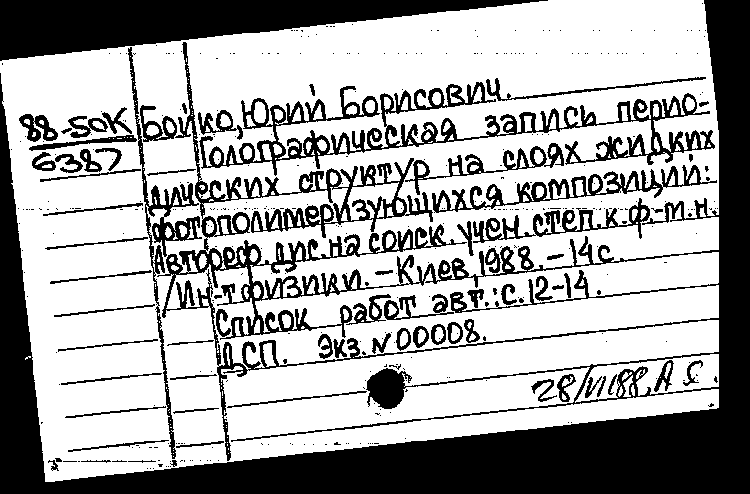 88-50К Бойко, Юрий Борисович.
6387 Голографическая запись перио-
дических структур на слоях жидких
фотополимеризующихся композиций:
Автореф. дис. на соиск. учен. степ. к. ф.-м. н.
/Ин-т физики. – Киев, 1988. – 14 с.
Список работ авт.: с. 12-14.
ДСП. Экз. N 00008.
28/VI 88,